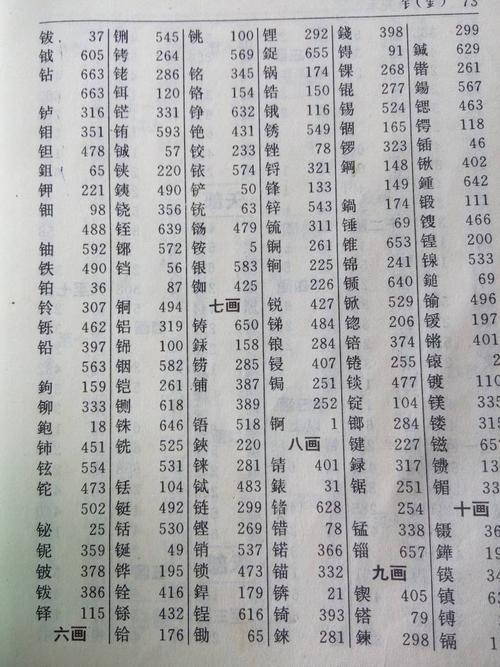 73
钹 37
钺 605
钻 663
663
𬬻 316
钼 351
钽 478
鉏 65
钾 221
钿 98
488
铀 592
铁 490
铂 36
铃 307
铄 462
铅 397
563
鉤 159
铆 333
鉋 18
铈 451
铉 554
铊 473
502
铋 25
铌 359
铍 378
䥽 386
铎 115
六画
铏 545
铐 264
铑 286
铒 120
铓 331
铕 593
铖 57
铗 220
銕 490
铙 356
铚 639
铘 572
铛 56
87
铜 494
铝 319
铞 100
铟 582
铠 261
铡 618
铢 646
铣 525
531
铥 104
铤 492
铦 530
49
铧 195
铨 416
铩 432
铪 176
铫 100
569
铭 345
铬 154
铮 632
铯 431
铰 233
铱 574
铲 50
铳 63
铴 479
铵 5
银 583
铷 425
七画
铸 650
158
铹 285
铺 387
389
铻 518
鋏 220
铼 281
铽 483
链 299
铿 269
销 537
锁 473
銲 179
锃 616
锄 65
锂 292
鋜 655
锅 174
锆 150
锇 116
锈 549
锉 78
锊 321
锋 133
锌 543
锍 311
锎 261
锏 225
226
锐 427
锑 484
锒 284
锓 407
锔 251
252
锕 1
八画
锖 401
錶 31
锗 628
错 78
锘 366
锚 332
锛 21
锜 393
錸 281
錢 398
锝 91
锞 268
锟 277
锡 524
锢 165
锣 323
鋼 148
149
鍋 174
锤 69
锥 653
锦 241
锧 640
锨 529
锪 206
锫 374
锩 255
锬 477
锭 104
鎯 284
键 227
録 317
锯 251
254
锰 338
锱 657
九画
锲 405
𨱏 79
鍊 298
299
鍼 629
锴 261
鍚 567
锶 463
锷 118
锸 46
锹 402
鍾 642
锻 111
锼 466
锽 200
533
鎚 69
鍮 496
锾 197
锵 401
镀 11
镁 335
镂 315
镃 65
镄 13
镅 33
十画
镊 36
鏵 19
镆
镇
镈
镉